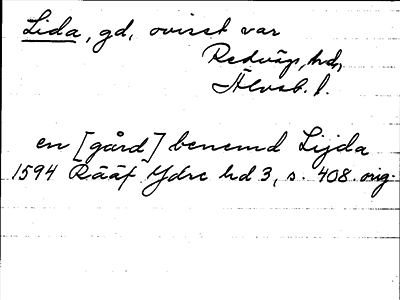 Lida, gd, ovisst var
Redvägs hd,
Älvsb. l.
en [gård] benemd Lijda
1594 Rääf Ydre hd 3, s. 408. orig.